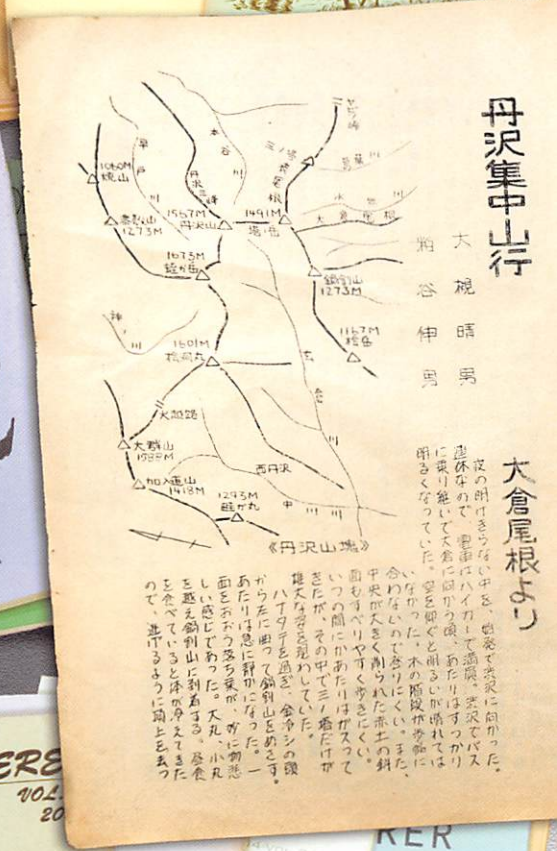 丹沢集中山行
大槻晴男
粕谷伸男
1060M
焼山
早戸川
本谷川
丹沢三峰
1567M
丹沢山
1491M
塔ヶ岳
ヤビツ峠
三ノ塔尾根
葛葉川
水無川
大倉尾根
1273M
1673M
蛭が岳
鍋割山
1273M
1167M
桧岳
神ノ川
1601M
桧洞丸
玄倉川
犬越路
大群山
1588M
加入道山
1418M
西丹沢
1293M
畦が丸
中川川
《丹沢山塊》
大倉尾根より
夜の明けきらない中を、始発で渋沢に向かった。
連休なので、電車はハイカーで満員。渋沢でバス
に乗り継いで大倉に向かう頃、あたりはすっかり
明るくなっていた。空を仰ぐと明るいが晴れては
いなかった。木の階段が歩幅に
合わないので登りにくい。また、
中央が大きく削られた赤土の斜
面もすべりやすく歩きにくい。
いつの間にかあたりはガスって
きたが、その中で三ノ塔だけが
雄大な姿を現わしていた。
ハナタテを過ぎ、金冷シの頭
から左に曲って鍋割山をめざす。
あたりは急に静かになった。一
面をおおう落ち葉が、妙に物悲
しい感じであった。大丸、小丸
を越え鍋割山に到着する。昼食
を食べていると体が冷えてきた
ので、逃げるように頂上を去っ
VOL.
20
RER